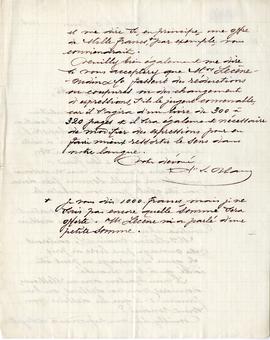 et me dire si, en principe, une offre
de Mille francs, par exemple, vous
conviendrait.
Veuillez bien également me dire
si vous accepteriez que Mm Lecène
fassent des réductions
ou coupures ou des changements
d'expressions, s'ils le jugent convenable,
car il s'agira d'un livre de 300 à
320 pages et il sera également nécessaire
de modifier des expressions pour en
faire mieux ressortir le sens dans
notre langue.
Votre dévoué
* je vous dis 1000 francs, mais je ne
sais pas encore quelle somme sera
offerte. Lecène m'a parlé d'une
petite somme.